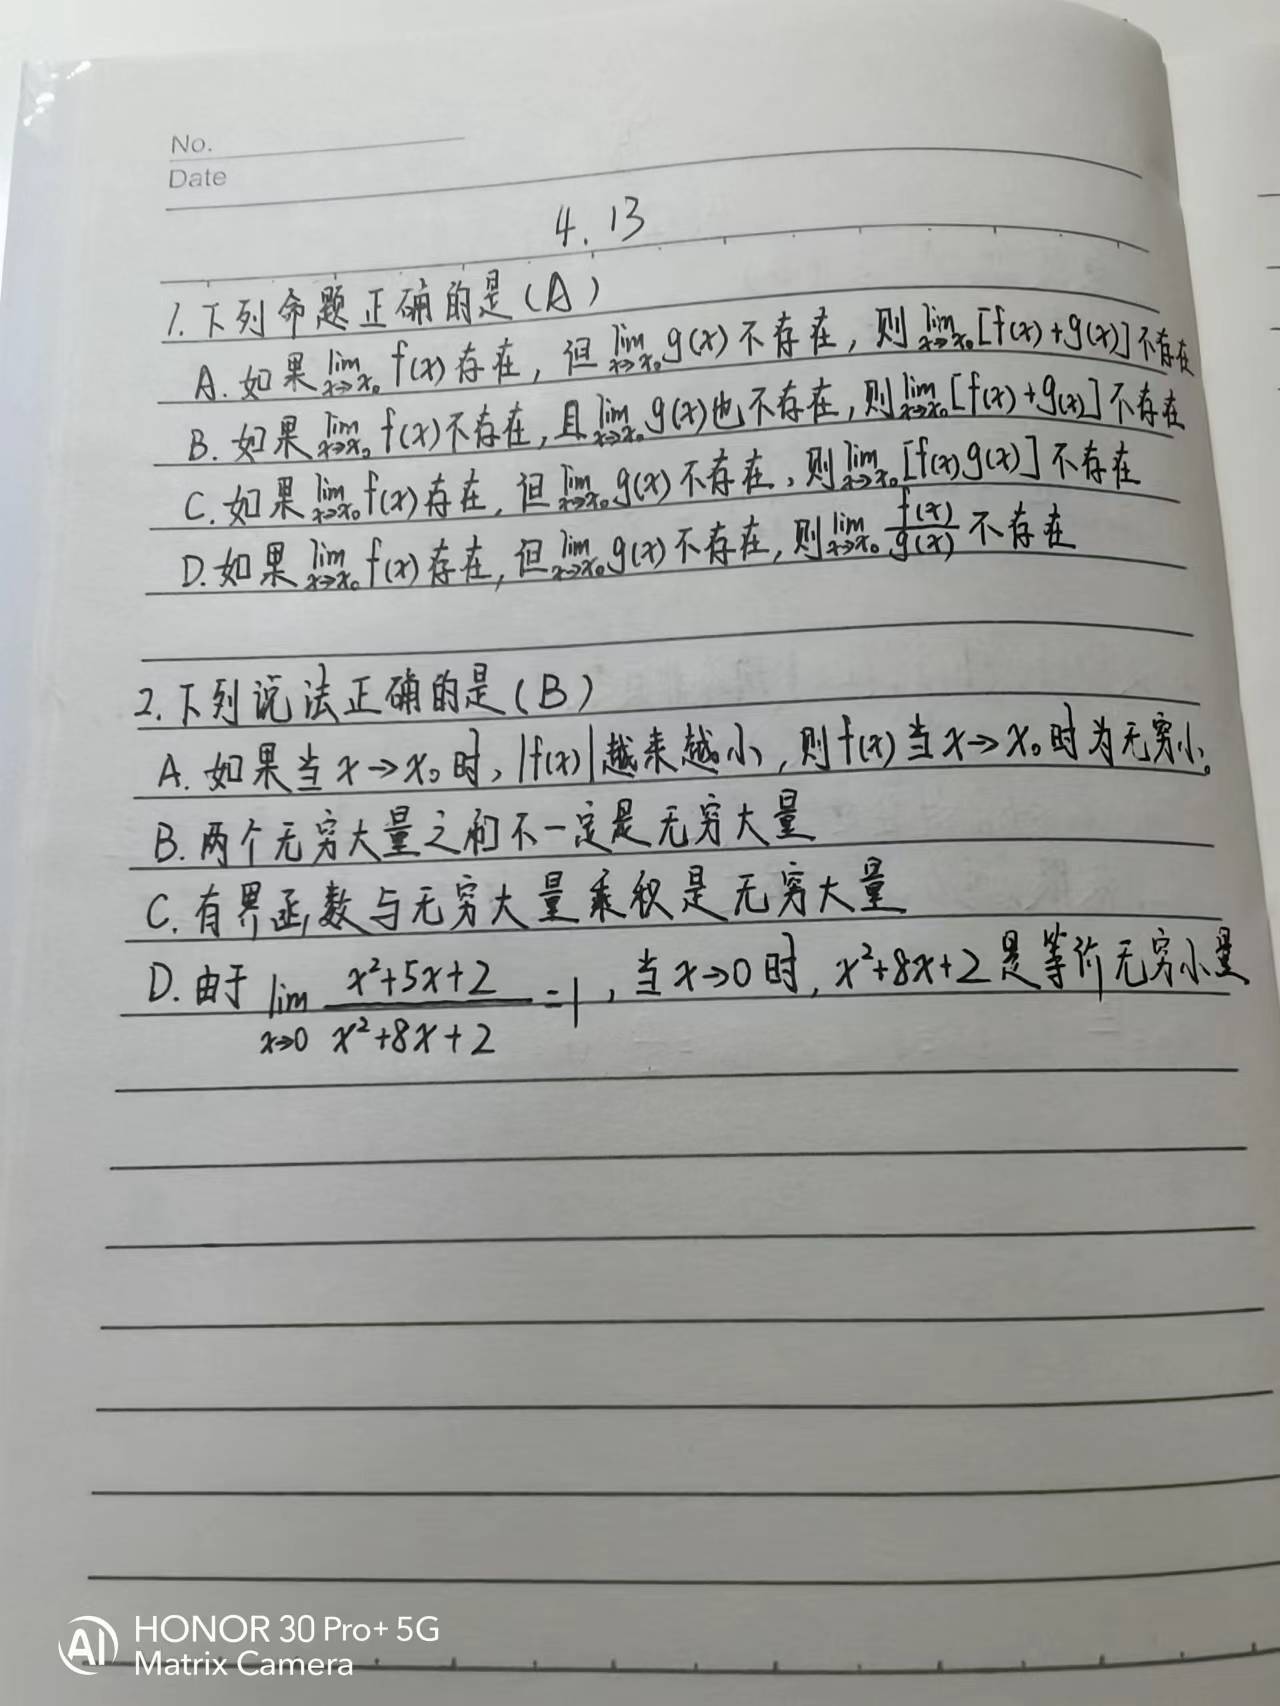 No.
Date
4.13
1.下列命题正确的是(A)
A.如果lim x→x₀ f(x)存在，但lim x→x₀ g(x)不存在，则lim x→x₀ [f(x)+g(x)]不存在
B.如果lim x→x₀ f(x)不存在，且lim x→x₀ g(x)也不存在，则lim x→x₀ [f(x)+g(x)]不存在
C.如果lim x→x₀ f(x)存在，但lim x→x₀ g(x)不存在，则lim x→x₀ [f(x)g(x)]不存在
D.如果lim x→x₀ f(x)存在，但lim x→x₀ g(x)不存在，则lim x→x₀ f(x)/g(x) 不存在
2.下列说法正确的是(B)
A.如果当x→x₀时，|f(x)|越来越小，则f(x)当x→x₀时为无穷小。
B.两个无穷大量之和不一定是无穷大量
C.有界函数与无穷大量乘积是无穷大量
D.由于lim x→0 (x²+5x+2)/(x²+8x+2)=1，当x→0时，x²+8x+2是等价无穷小量
AI HONOR 30 Pro+ 5G
Matrix Camera